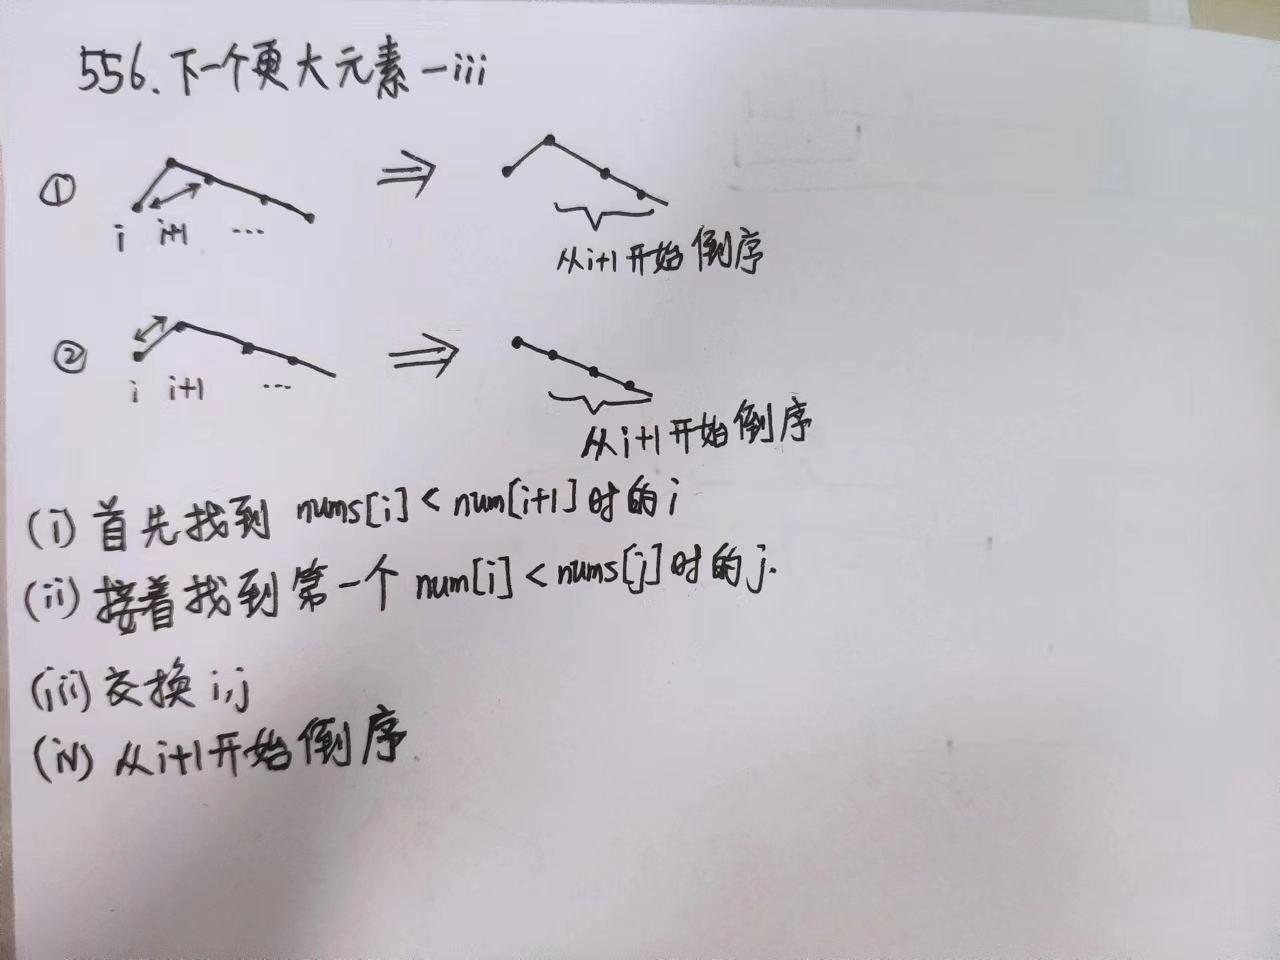 556.下一个更大元素-iii
①
i i+1 ...
从i+1开始倒序
②
i i+1 ...
从i+1开始倒序
(i) 首先找到 nums[i] < num[i+1] 时的 i
(ii) 接着找到第一个 num[i] < nums[j] 时的 j.
(iii) 交换 i,j
(iv) 从i+1开始倒序